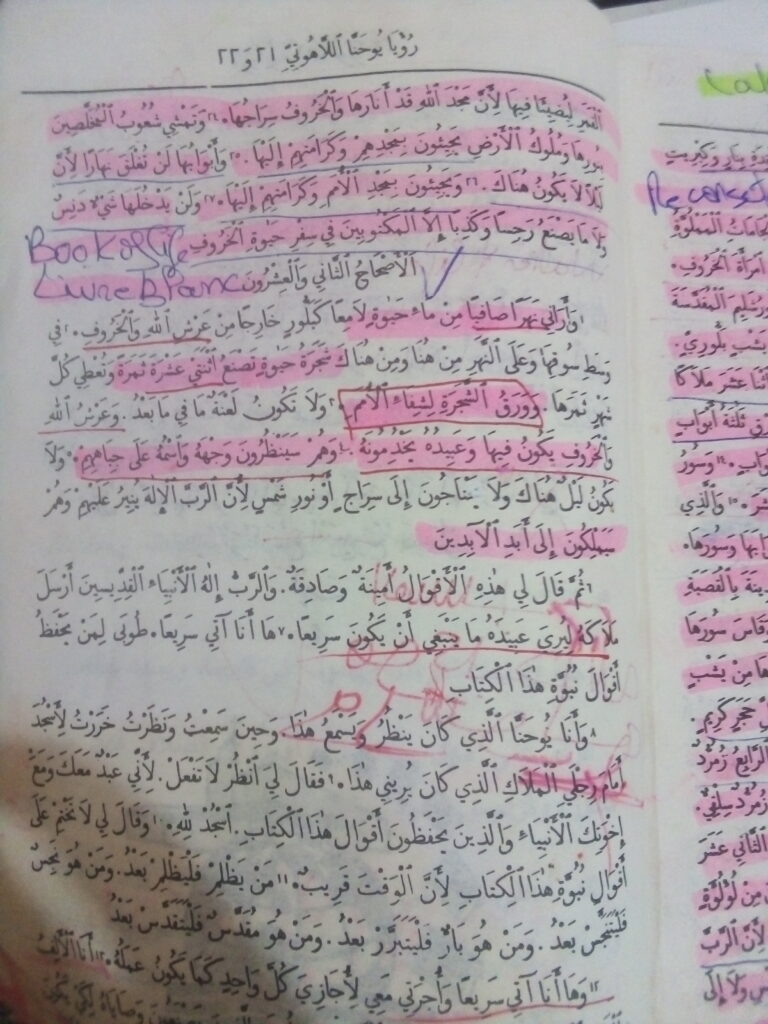 رُؤْيَا يُوحَنَّا ٱللَّاهُوتِيِّ ٢١ و ٢٢
ٱلْقَمَرِ لِيُضِيئَا فِيهَا لِأَنَّ مَجْدَ ٱللهِ قَدْ أَنَارَهَا وَٱلْخَرُوفُ سِرَاجُهَا. ٢٤وَتَمْشِي شُعُوبُ ٱلْمُخَلَّصِينَ
بِنُورِهَا وَمُلُوكُ ٱلْأَرْضِ يَجِيئُونَ بِمَجْدِهِمْ وَكَرَامَتِهِمْ إِلَيْهَا. ٢٥وَأَبْوَابُهَا لَنْ تُغْلَقَ نَهَارًا لِأَنَّ
لَيْلًا لَا يَكُونُ هُنَاكَ. ٢٦وَيَجِيئُونَ بِمَجْدِ ٱلْأُمَمِ وَكَرَامَتِهِمْ إِلَيْهَا. ٢٧وَلَنْ يَدْخُلَهَا شَيْءٌ دَنِسٌ
وَلَا مَا يَصْنَعُ رَجِسًا وَكَذِبًا إِلَّا ٱلْمَكْتُوبِينَ فِي سِفْرِ حَيٰوةِ ٱلْخَرُوفِ
Book of life
ٱلْأَصْحَاحُ ٱلثَّانِي وَٱلْعِشْرُونَ
Livre Blanc
١وَأَرَانِي نَهْرًا صَافِيًا مِنْ مَاءِ حَيٰوةٍ لَامِعًا كَبَلُّورٍ خَارِجًا مِنْ عَرْشِ ٱللهِ وَٱلْخَرُوفِ. ٢فِي
وَسَطِ سُوقِهَا وَعَلَى ٱلنَّهْرِ مِنْ هُنَا وَمِنْ هُنَاكَ شَجَرَةُ حَيٰوةٍ تَصْنَعُ ٱثْنَتَيْ عَشْرَةَ ثَمَرَةً وَتُعْطِي كُلَّ
شَهْرٍ ثَمَرَهَا. وَوَرَقُ ٱلشَّجَرَةِ لِشِفَاءِ ٱلْأُمَمِ. ٣وَلَا تَكُونُ لَعْنَةٌ مَا فِي مَا بَعْدُ. وَعَرْشُ ٱللهِ
وَٱلْخَرُوفِ يَكُونُ فِيهَا وَعَبِيدُهُ يَخْدِمُونَهُ. ٤وَهُمْ سَيَنْظُرُونَ وَجْهَهُ وَٱسْمُهُ عَلَى جِبَاهِهِمْ. ٥وَلَا
يَكُونُ لَيْلٌ هُنَاكَ وَلَا يَحْتَاجُونَ إِلَى سِرَاجٍ أَوْ نُورِ شَمْسٍ لِأَنَّ ٱلرَّبَّ ٱلْإِلٰهَ يُنِيرُ عَلَيْهِمْ وَهُمْ
سَيَمْلِكُونَ إِلَى أَبَدِ ٱلْآبِدِينَ
٦ثُمَّ قَالَ لِي هٰذِهِ ٱلْأَقْوَالُ أَمِينَةٌ وَصَادِقَةٌ. وَٱلرَّبُّ إِلٰهُ ٱلْأَنْبِيَاءِ ٱلْقِدِّيسِينَ أَرْسَلَ
مَلَاكَهُ لِيُرِيَ عَبِيدَهُ مَا يَنْبَغِي أَنْ يَكُونَ سَرِيعًا. ٧هَا أَنَا آتِي سَرِيعًا. طُوبَى لِمَنْ يَحْفَظُ
أَقْوَالَ نُبُوَّةِ هٰذَا ٱلْكِتَابِ
٨وَأَنَا يُوحَنَّا ٱلَّذِي كَانَ يَنْظُرُ وَيَسْمَعُ هٰذَا. وَحِينَ سَمِعْتُ وَنَظَرْتُ خَرَرْتُ لِأَسْجُدَ
أَمَامَ رِجْلَيِ ٱلْمَلَاكِ ٱلَّذِي كَانَ يُرِينِي هٰذَا. ٩فَقَالَ لِيَ ٱنْظُرْ لَا تَفْعَلْ. لِأَنِّي عَبْدٌ مَعَكَ وَمَعَ
إِخْوَتِكَ ٱلْأَنْبِيَاءِ وَٱلَّذِينَ يَحْفَظُونَ أَقْوَالَ هٰذَا ٱلْكِتَابِ. ٱسْجُدْ لِلهِ. ١٠وَقَالَ لِي لَا تَخْتِمْ عَلَى
أَقْوَالِ نُبُوَّةِ هٰذَا ٱلْكِتَابِ لِأَنَّ ٱلْوَقْتَ قَرِيبٌ. ١١مَنْ يَظْلِمْ فَلْيَظْلِمْ بَعْدُ. وَمَنْ هُوَ نَجِسٌ
فَلْيَتَنَجَّسْ بَعْدُ. وَمَنْ هُوَ بَارٌّ فَلْيَتَبَرَّرْ بَعْدُ. وَمَنْ هُوَ مُقَدَّسٌ فَلْيَتَقَدَّسْ بَعْدُ
١٢وَهَا أَنَا آتِي سَرِيعًا وَأُجْرَتِي مَعِي لِأُجَازِيَ كُلَّ وَاحِدٍ كَمَا يَكُونُ عَمَلُهُ. ١٣أَنَا ٱلْأَلِفُ
بِنَارٍ وَكِبْرِيتٍ
ٱلْمَمْلُوَّةِ
ٱمْرَأَةَ ٱلْخَرُوفِ.
ٱلْمُقَدَّسَةَ
يَشْبٍ بَلُّورِيٍّ.
عَشَرَ مَلَاكًا
ثَلٰثَةُ أَبْوَابٍ
وَسُورُ
وَٱلَّذِي
وَسُورَهَا.
بِٱلْقَصَبَةِ
وَقَاسَ سُورَهَا
مِنْ يَشْبٍ
حَجَرٍ كَرِيمٍ.
ٱلرَّابِعُ زُمُرُّدٌ
زُمُرُّدٌ سِلْقِيٌّ.
ٱلثَّانِي عَشَرَ
مِنْ لُؤْلُؤَةٍ
لِأَنَّ ٱلرَّبَّ
وَلَا إِلَى